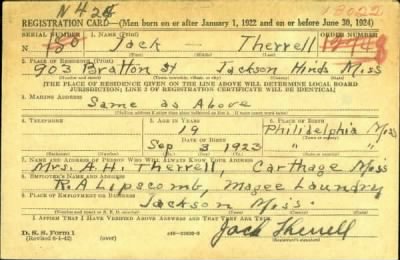 N 424
REGISTRATION CARD—(Men born on or after January 1, 1922 and on or before June 30, 1924)
SERIAL NUMBER 1. NAME (Print) ORDER NUMBER
Jack Therrell
2. PLACE OF RESIDENCE (Print)
903 Bratton St Jackson Hinds Miss
(Number and street) (Town, township, village, or city) (County) (State)
[THE PLACE OF RESIDENCE GIVEN ON THE LINE ABOVE WILL DETERMINE LOCAL BOARD
JURISDICTION; LINE 2 OF REGISTRATION CERTIFICATE WILL BE IDENTICAL]
3. MAILING ADDRESS
Same as Above
4. TELEPHONE 5. AGE IN YEARS 6. PLACE OF BIRTH
19 Philidelphia Miss
DATE OF BIRTH
Sep 3 1923 " "
7. NAME AND ADDRESS OF PERSON WHO WILL ALWAYS KNOW YOUR ADDRESS
Mrs. A. H. Therrell, Carthage Miss
8. EMPLOYER'S NAME AND ADDRESS
R. A Lipscomb, Magee Laundry
9. PLACE OF EMPLOYMENT OR BUSINESS
Jackson Miss.
(Number and street or R. F. D. number) (Town) (County) (State)
I AFFIRM THAT I HAVE VERIFIED ABOVE ANSWERS AND THAT THEY ARE TRUE.
D. S. S. Form 1
(Revised 6-1-42) (over) Jack Therrell
(Registrant's signature)